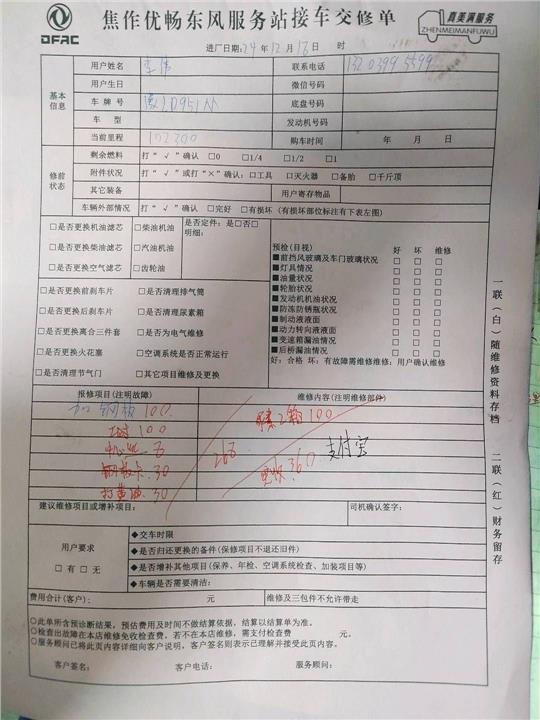 DFAC
焦作优畅东风服务站接车交修单
真美满服务
ZHENMEIMANFUWU
进厂日期:24年12月18日 时
基本信息
用户姓名 李伟 联系电话
用户生日 微信号码
车 牌 号 底盘号码
车 型 发动机号码
当前里程 102300 购车时间 年 月 日
修前状态
剩余燃料 打“√”确认 □0 □1/4 □1/2 □1
附件状况 打“√”或打“×”确认：□工具 □灭火器 □备胎 □千斤顶
其它装备 用户寄存物品
车辆外部情况 打“√”确认 □完好 □有损坏（有损坏部位标注有下表左图）
□是否更换机油滤芯 □柴油机油 是否定件：是□否□
明细：
□是否更换柴油滤芯 □汽油机油
□是否更换空气滤芯 □齿轮油
□是否更换前刹车片 □是否清理排气筒
□是否更换后刹车片 □是否清理尿素箱
□是否更换离合三件套 □是否为电气维修
□是否更换火花塞 □空调系统是否正常运行
□是否清理节气门 □其它项目维修及更换
预检(目视) 好 坏 维修
■前挡风玻璃及车门玻璃状况 □ □ □
■灯具情况 □ □ □
■油量状况 □ □ □
■轮胎状况 □ □ □
■发动机机油状况 □ □ □
■防冻防锈瓶状况 □ □ □
■制动液液面 □ □ □
■动力转向液液面 □ □ □
■变速箱漏油情况 □ □ □
■后桥漏油情况 □ □ □
好：合格 坏：有故障需维修维修：用户确认维修
报修项目(注明故障) 维修内容(注明维修部件)
加钢板 100
100
30
打黄油 30
268
100
360
支付宝
建议维修项目或增补项目： 司机确认签字：
用户要求
□有 □无
◆交车时限
◆是否归还更换的备件(保修项目不退还旧件)
◆是否增补其他项目(保养、年检、空调系统检查、加装项目等)
◆车辆是否需要清洁：
费用合计(客户)： 元 维修及三包件不允许带走
○此单所含预诊断结果，预估费用及时间不做结算依据，结算以结算单为准。
○检查出故障在本店维修免收检查费，若不在本店维修，需支付检查费 元。
○服务顾问已将此页内容详细向客户说明，客户签名则表示已理解并接受此页内容。
客户签名： 客户电话： 服务顾问：
一联（白）随维修资料存档
二联（红）财务留存